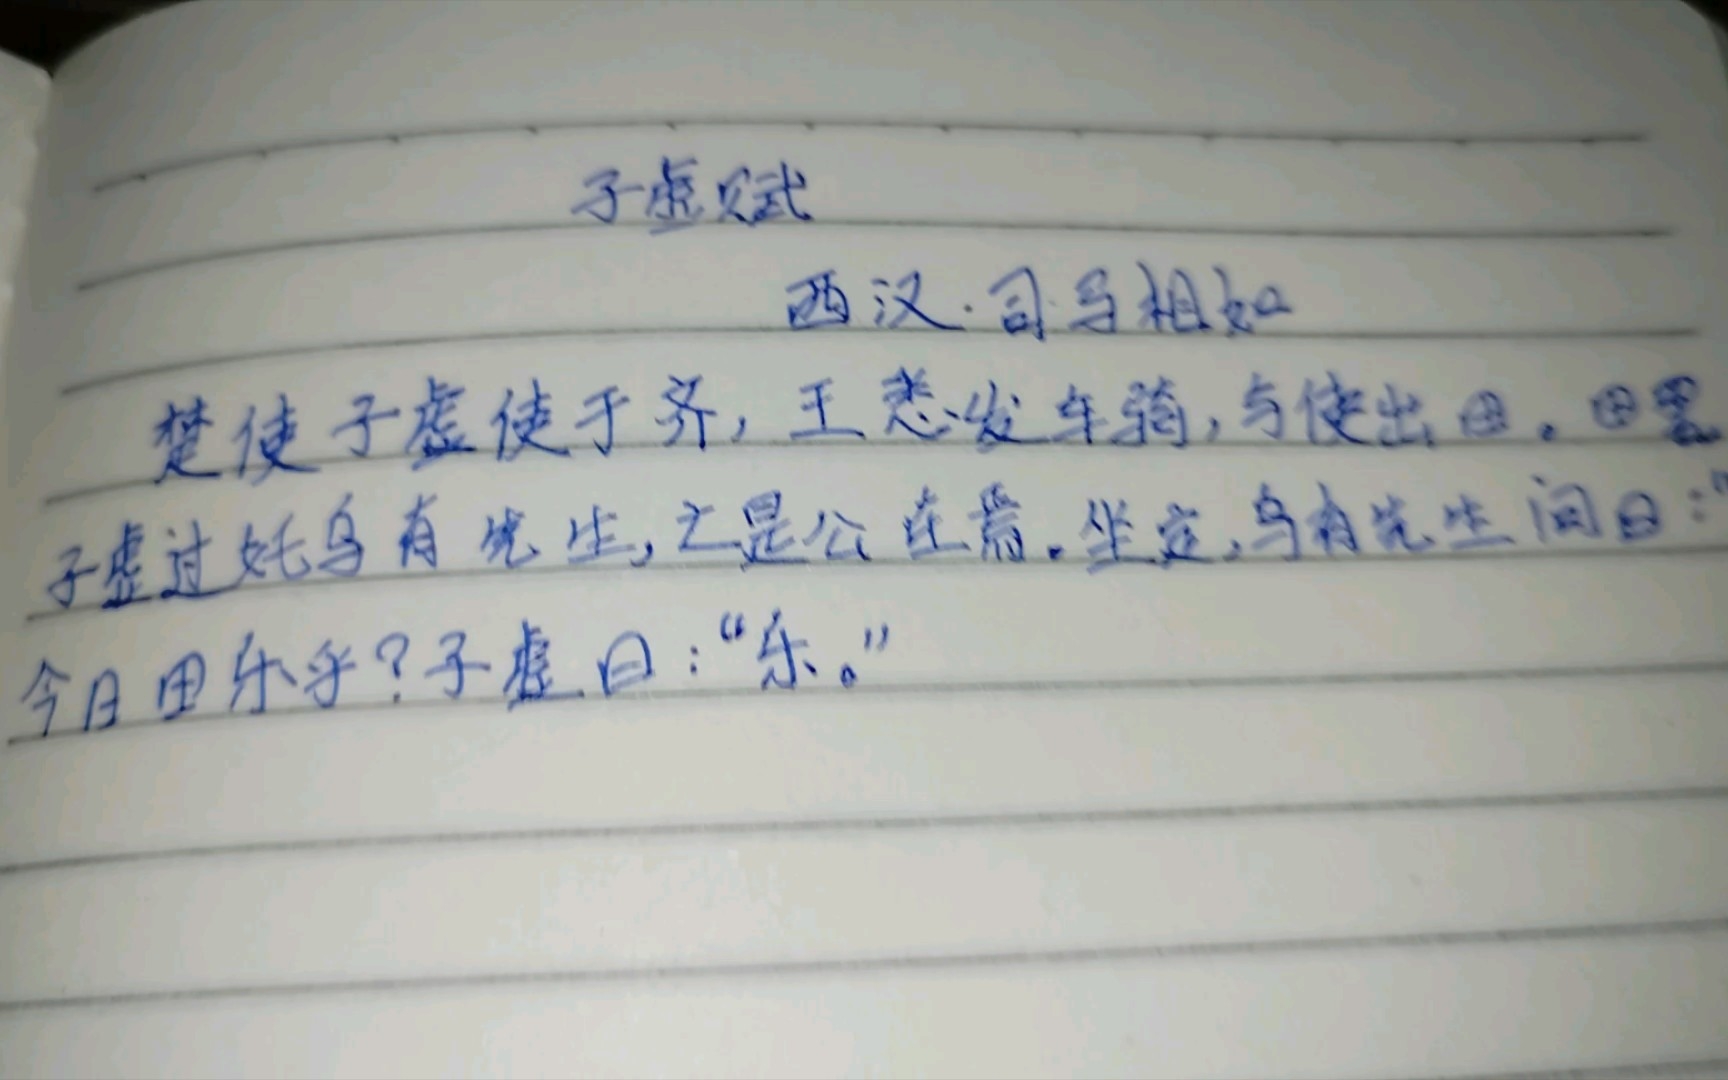 子虚赋
西汉·司马相如
楚使子虚使于齐,王悉发车骑,与使出田。田罢
子虚过奼乌有先生,亡是公在焉。坐定,乌有先生问曰:“
今日田乐乎?子虚曰:“乐。”